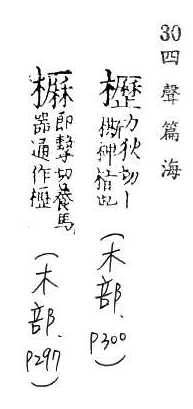 30 四聲篇海
櫪 力狄切丨
指也
(木部. p300)
即擊切養馬
器通作櫪
(木部. p297)